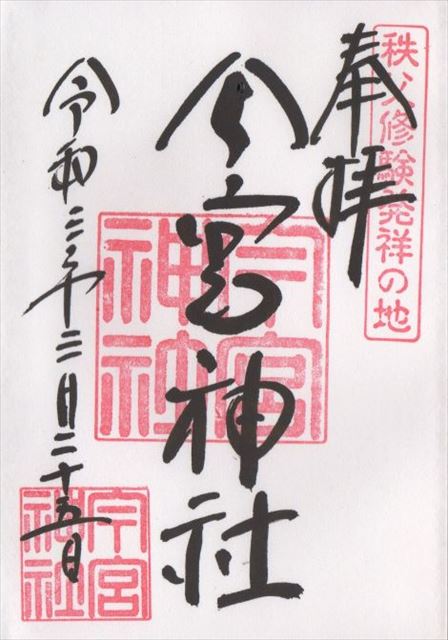 秩父修験発祥の地
奉拝
今宮神社
今宮神社
令和三年十二月二十五日
今宮神社